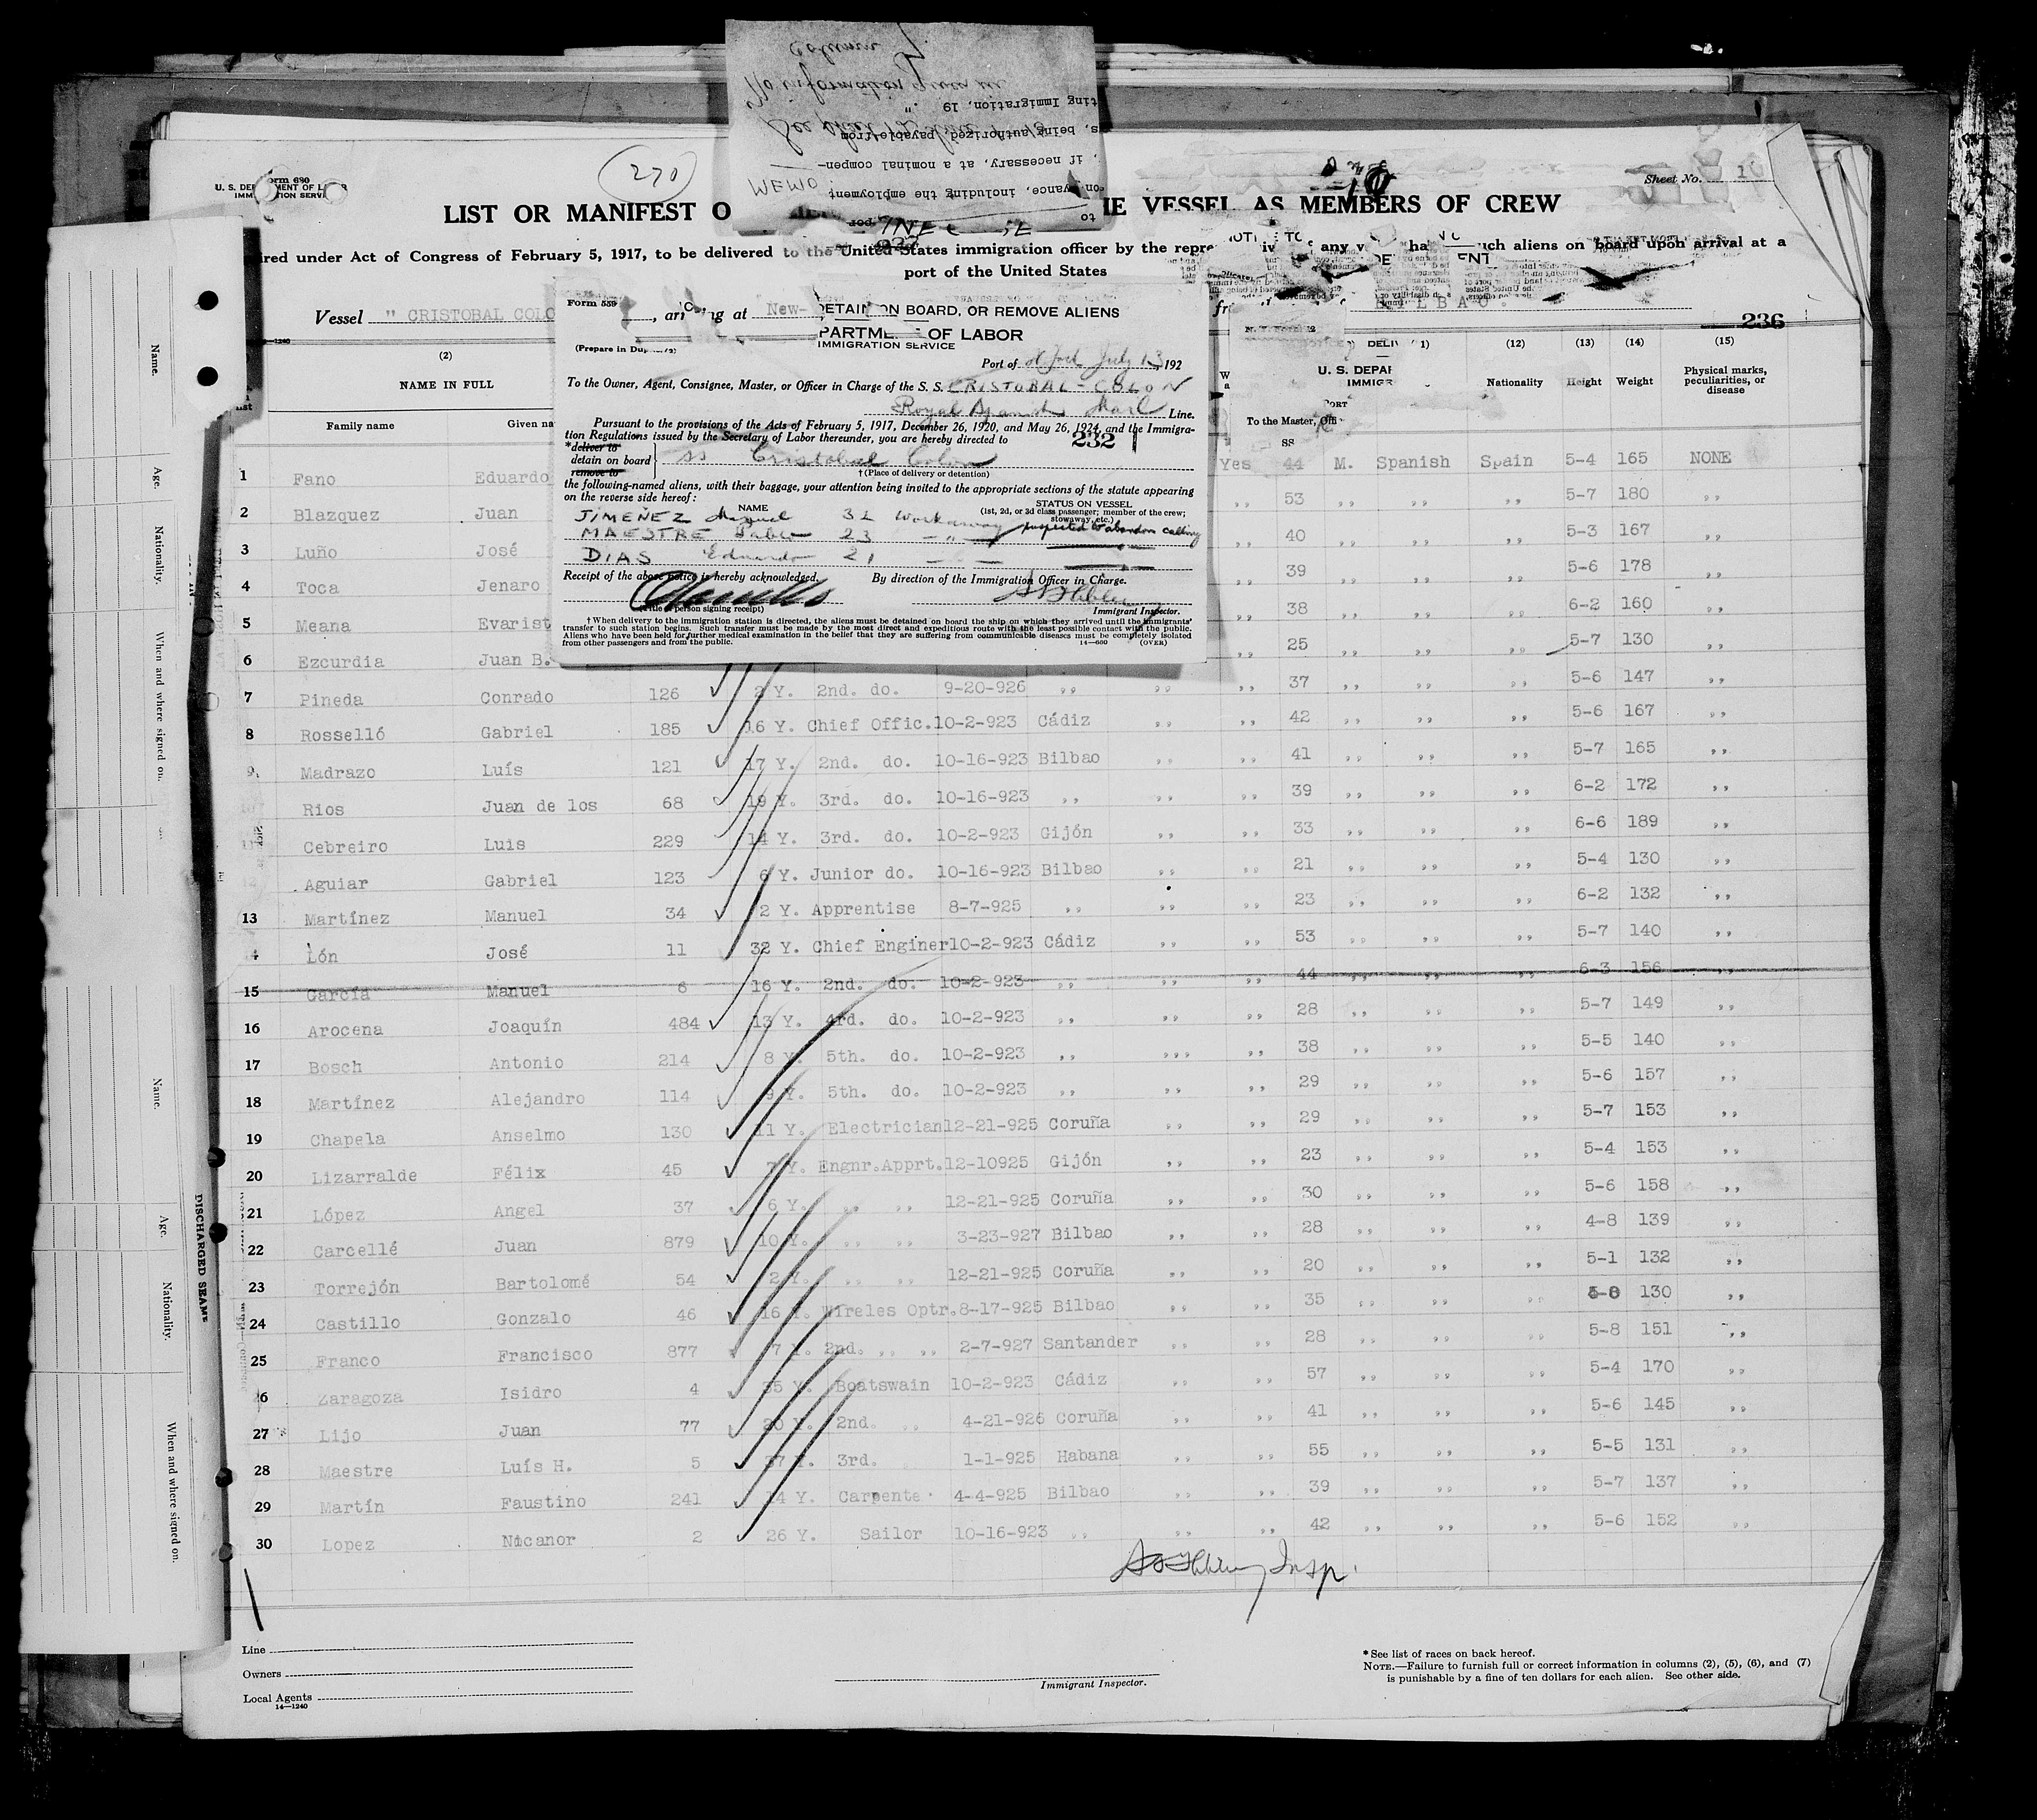 270
Form 680
U. S. DEPARTMENT OF LABOR
IMMIGRATION SERVICE
Sheet No. 1
column
No information given in
ting Immigration, 19 ."
s, being authorized, payable from
, if necessary, at a nominal compen-
MEMO
onveyance, including the employment
to
LIST OR MANIFEST O
HE VESSEL AS MEMBERS OF CREW
ired under Act of Congress of February 5, 1917, to be delivered to the United States immigration officer by the repre any uch aliens on board upon arrival at a
port of the United States
Vessel " CRISTOBAL COLO
, arriving at New-
236
Form 559
DETAIN ON BOARD, OR REMOVE ALIENS
DEPARTMENT OF LABOR
IMMIGRATION SERVICE
(Prepare in Dup
Port of N York July 13 192
To the Owner, Agent, Consignee, Master, or Officer in Charge of the S. S. CRISTOBAL-COLON
Royal Spanish Mail Line.
Pursuant to the provisions of the Acts of February 5, 1917, December 26, 1920, and May 26, 1924, and the Immigra-
tion Regulations issued by the Secretary of Labor thereunder, you are hereby directed to 232
*deliver to
detain on board } SS Cristobal Colon
remove to
†(Place of delivery or detention)
the following-named aliens, with their baggage, your attention being invited to the appropriate sections of the statute appearing
on the reverse side hereof:
NAME STATUS ON VESSEL
(1st, 2d, or 3d class passenger; member of the crew;
stowaway, etc.)
JIMEÑEZ Workaway suspected to abandon calling
MAESTRE Pablo 23 - " -
DIAS Eduardo 21
Receipt of the above notice is hereby acknowledged.
By direction of the Immigration Officer in Charge.
(Title of person signing receipt)
Immigrant Inspector.
†When delivery to the immigration station is directed, the aliens must be detained on board the ship on which they arrived until the immigrants'
transfer to such station begins. Such transfer must be made by the most direct and expeditious route with the least possible contact with the public.
Aliens who have been held for further medical examination in the belief that they are suffering from communicable diseases must be completely isolated
from other passengers and from the public.
14—660 (OVER)
U. S. DEPAR
IMMIGR
PORT
To the Master, Offi
SS
(2) (12) (13) (14) (15)
NAME IN FULL Nationality Height Weight Physical marks, peculiarities, or disease
Family name Given na
1 Fano Eduardo Yes 44 M. Spanish Spain 5-4 165 NONE
2 Blazquez Juan ,, 53 ,, ,, ,, 5-7 180 ,,
3 Luño José ,, 40 ,, ,, ,, 5-3 167 ,,
4 Toca Jenaro ,, 39 ,, ,, ,, 5-6 178 ,,
5 Meana Evarist ,, 38 ,, ,, ,, 6-2 160 ,,
6 Ezcurdia Juan B. ,, 25 ,, ,, ,, 5-7 130 ,,
7 Pineda Conrado 126 2 Y. 2nd. do. 9-20-926 ,, ,, ,, 37 ,, ,, ,, 5-6 147 ,,
8 Rosselló Gabriel 185 16 Y. Chief Offic. 10-2-923 Cádiz ,, ,, 42 ,, ,, ,, 5-6 167 ,,
9 Madrazo Luís 121 17 Y. 2nd. do. 10-16-923 Bilbao ,, ,, 41 ,, ,, ,, 5-7 165 ,,
Rios Juan de los 68 19 Y. 3rd. do. 10-16-923 ,, ,, ,, 39 ,, ,, ,, 6-2 172 ,,
Cebreiro Luis 229 14 Y. 3rd. do. 10-2-923 Gijón ,, ,, 33 ,, ,, ,, 6-6 189 ,,
Aguiar Gabriel 123 6 Y. Junior do. 10-16-923 Bilbao ,, ,, 21 ,, ,, ,, 5-4 130 ,,
13 Martínez Manuel 34 2 Y. Apprentise 8-7-925 ,, ,, ,, 23 ,, ,, ,, 6-2 132 ,,
4 Lón José 11 32 Y. Chief Enginer 10-2-923 Cádiz ,, ,, 53 ,, ,, ,, 5-7 140 ,,
15 García Manuel 6 16 Y. 2nd. do. 10-2-923 ,, ,, ,, 44 ,, ,, ,, 6-3 156 ,,
16 Arocena Joaquín 484 13 Y. 4rd. do. 10-2-923 ,, ,, ,, 28 ,, ,, ,, 5-7 149 ,,
17 Bosch Antonio 214 8 Y. 5th. do. 10-2-923 ,, ,,, ,, 38 ,, ,, ,, 5-5 140 ,,
18 Martínez Alejandro 114 9 Y. 5th. do. 10-2-923 ,, ,, ,, 29 ,, ,, ,, 5-6 157 ,,
19 Chapela Anselmo 130 11 Y. Electrician 12-21-925 Coruña ,, ,, 29 ,, ,, ,, 5-7 153 ,,
20 Lizarralde Félix 45 7 Y. Engnr.Apprt. 12-10925 Gijón ,, ,, 23 ,, ,, ,, 5-4 153 ,,
21 López Angel 37 6 Y. ,, ,, 12-21-925 Coruña ,, ,, 30 ,, ,, ,, 5-6 158 ,,
22 Carcellé Juan 879 10 Y. ,, ,, 3-23-927 Bilbao ,, ,, 28 ,, ,, ,, 4-8 139 ,,
23 Torrejón Bartolomé 54 2 Y. ,, ,, 12-21-925 Coruña ,, ,, 20 ,, ,, ,, 5-1 132 ,,
24 Castillo Gonzalo 46 16 Y. Wireles Optr. 8-17-925 Bilbao ,, ,, 35 ,, ,, ,, 130 ,,
25 Franco Francisco 877 7 Y. 2nd. ,, ,, 2-7-927 Santander ,, ,, 28 ,, ,, ,, 5-8 151 ,,
26 Zaragoza Isidro 4 35 Y. Boatswain 10-2-923 Cádiz ,, ,, 57 ,, ,, ,, 5-4 170 ,,
27 Lijo Juan 77 20 Y. 2nd. ,, 4-21-926 Coruña ,, ,, 41 ,, ,, ,, 5-6 145 ,,
28 Maestre Luís H. 5 37 Y. 3rd. 1-1-925 Habana ,, ,, 55 ,, ,, ,, 5-5 131 ,,
29 Martín Faustino 241 14 Y. Carpente 4-4-925 Bilbao ,, ,, 39 ,, ,, ,, 5-7 137 ,,
30 Lopez Nicanor 2 26 Y. Sailor 10-16-923 ,, ,, ,, 42 ,, ,, ,, 5-6 152 ,,
Insp.
Line
Owners
Local Agents
14—1240
Immigrant Inspector.
* See list of races on back hereof.
NOTE.—Failure to furnish full or correct information in columns (2), (5), (6), and (7)
is punishable by a fine of ten dollars for each alien. See other side.
Name.
Age.
Nationality.
When and where signed on.
Name.
Age.
Nationality.
When and where signed on.
DISCHARGED SEAME